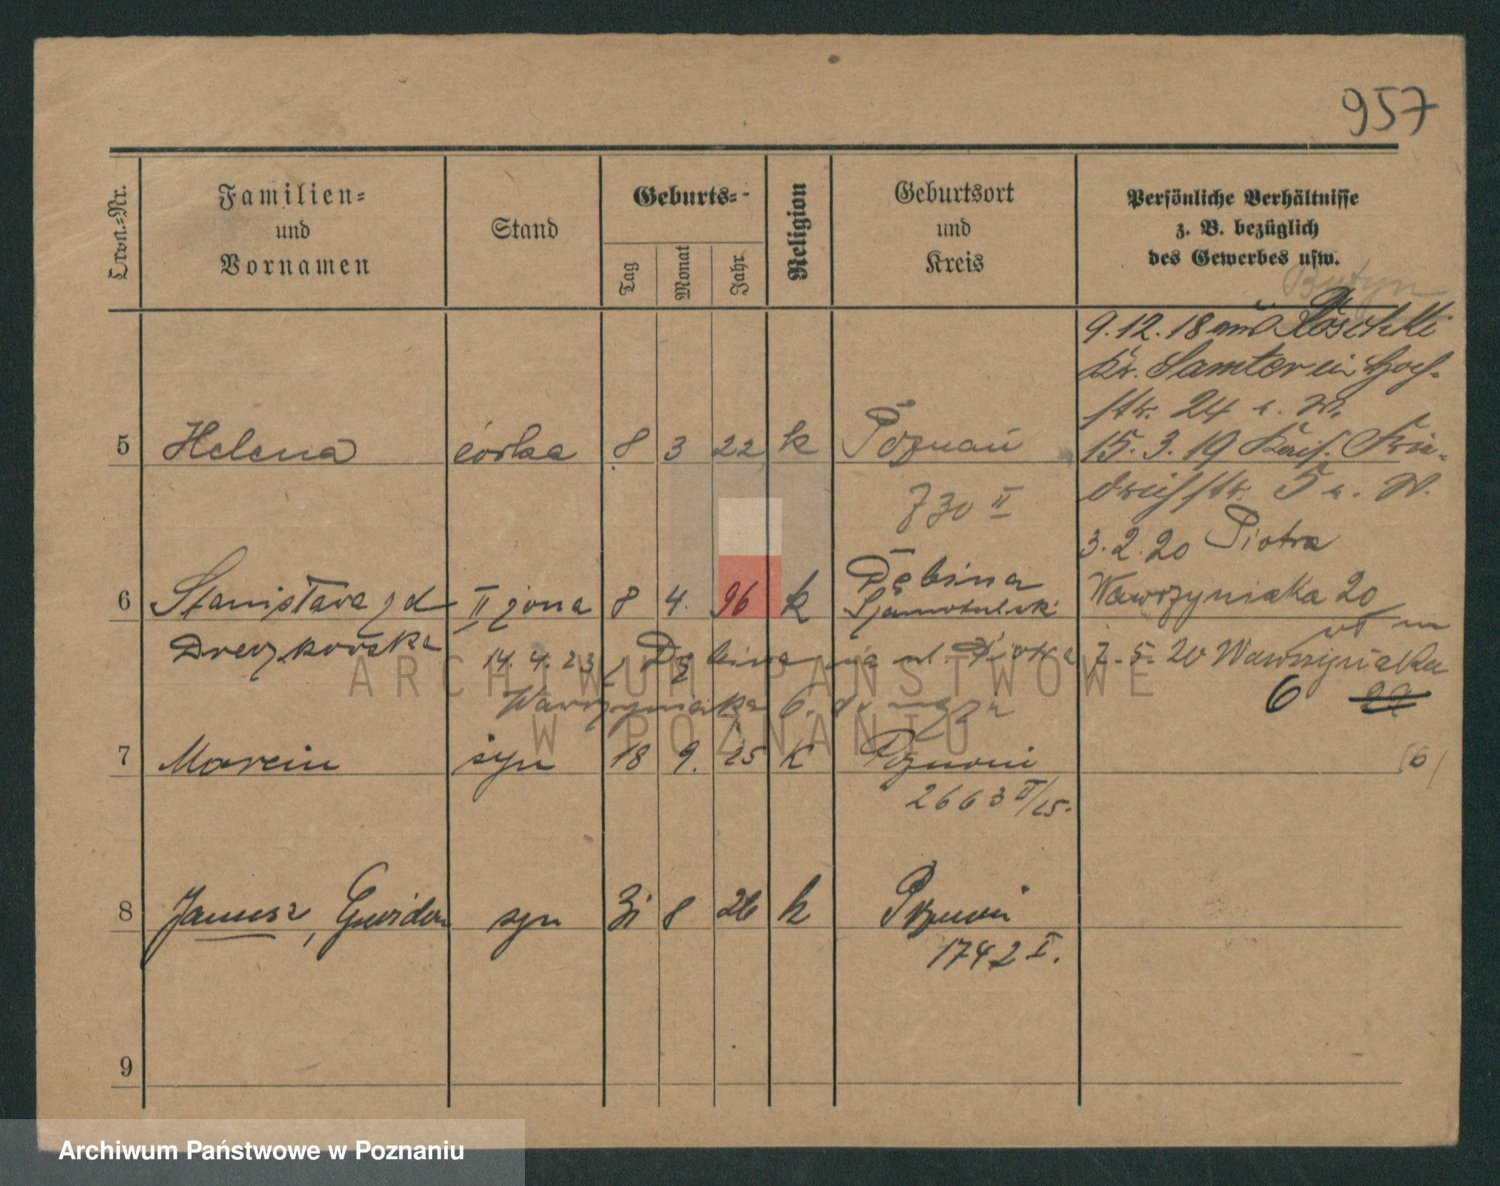 957
Ordn.-Nr.
Familien-
und
Vornamen
Stand
Geburts-
Tag
Monat
Jahr
Religion
Geburtsort
und
Kreis
Persönliche Verhältnisse
z. B. bezüglich
des Gewerbes usw.
9.12.18 aus
Kr. Samter in Hoch-
str. 24 b. W.
5 Helena córka 8 3 22 k Poznań
15.3.19 Kais. Frie-
drichstr. 5 b. W.
730 II
3.2.20 Piotra
6 Stanisława z d II żona 8 4. 96 k Dębina
Szamotulski
Wawrzyniaka 20
7.5.20 Wawrzyniaka
14.4.23, Dębina na ul. Piotra
Wawrzyniaka 6. do męża
6 22
7 Marcin syn 18 9. 25 k Poznań
(6)
2663 II/25.
8 Janusz, Gwidon syn 31 8 26 k Poznań
1742 I.
9
ARCHIWUM PAŃSTWOWE
W POZNANIU
Archiwum Państwowe w Poznaniu